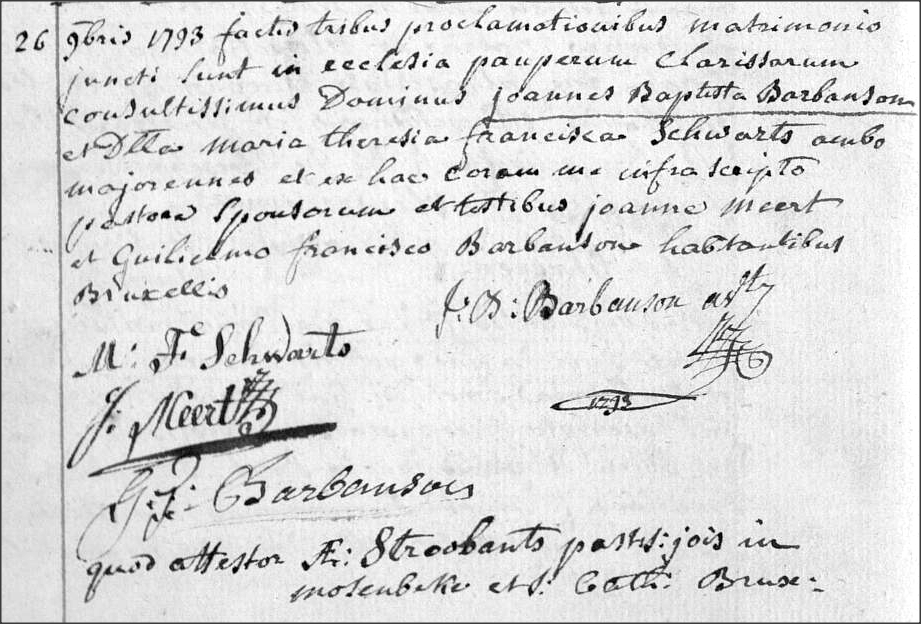 26 9bris 1793 factis tribus proclamationibus matrimonio
juncti sunt in ecclesia pauperum Clarissarum
consultissimus Dominus joannes Baptista Barbanson
et Dlla maria theresia francisca Schwarts ambo
majorennes et ex hac coram me infrascripto
pastore Sponsorum et testibus joanne meert
et Guilielmo francisco Barbanson habitantibus
Bruxellis
J: B: Barbanson
M: F Schwarts
J: Meert
1793
G: F: Barbanson
quod attestor Æ: Stroobants past: s: jois in
molenbeke et S. Cath: Brux: